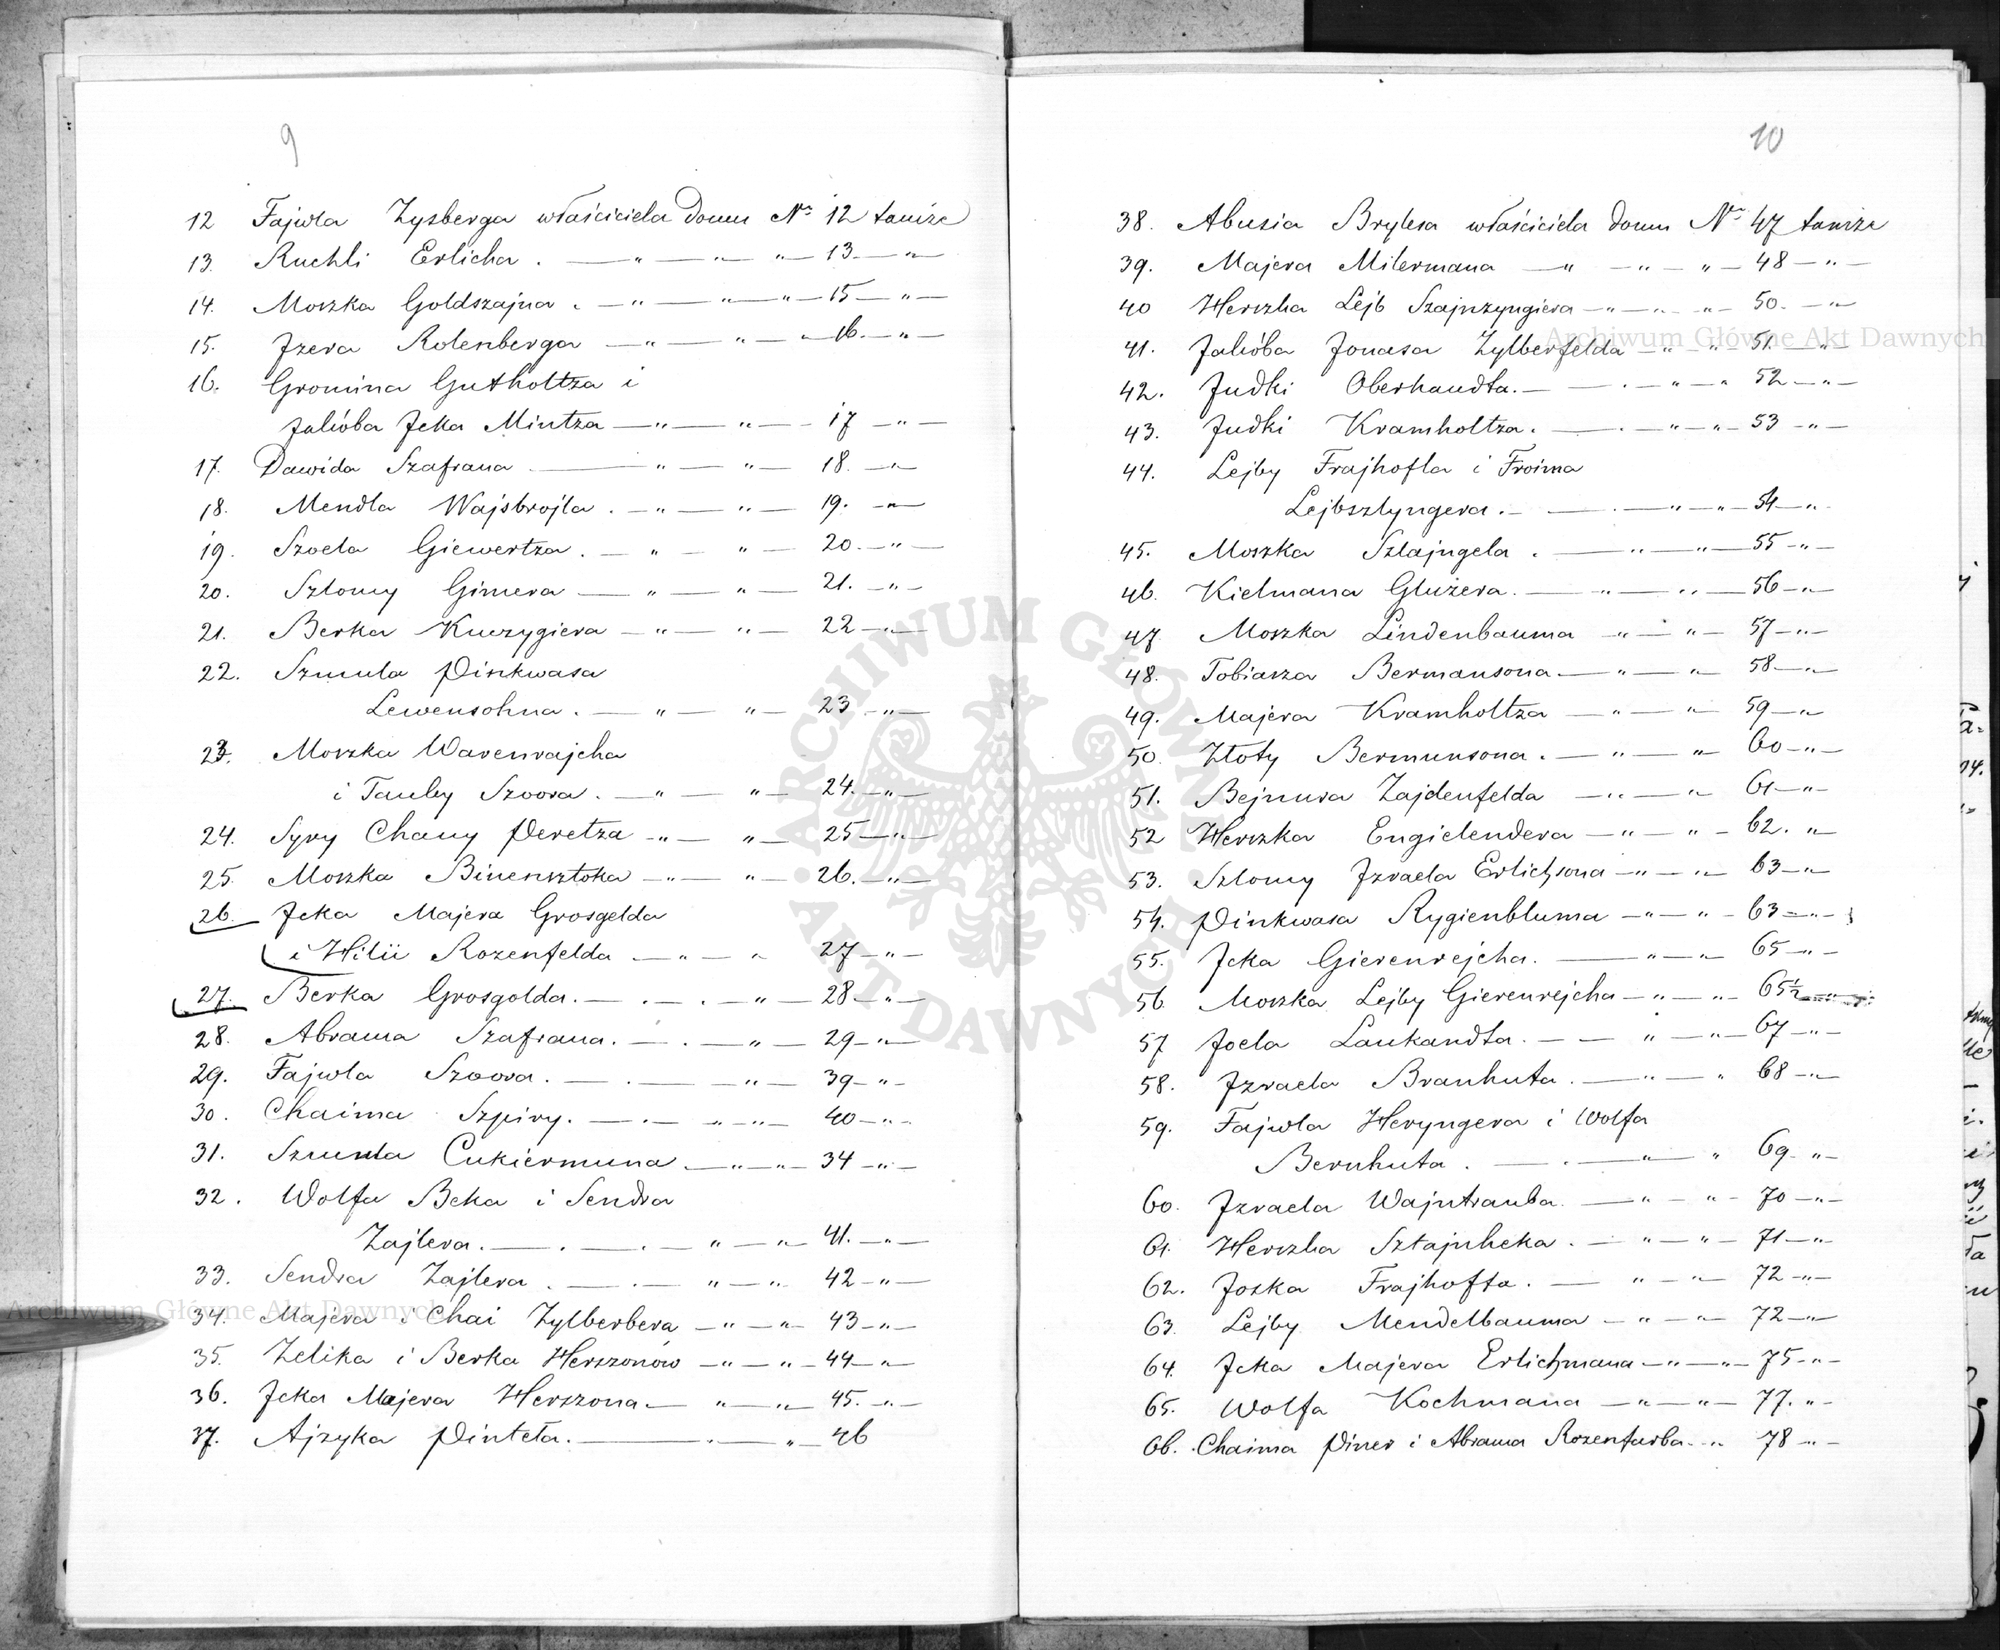 9
12 Fajwla Zysberga właściciela domu Nr 12 tamże
13. Ruchli Erlicha . — " — " — " — 13 — " —
14. Moszka Goldszajna . — " — " — " — 15 — " —
15. Jzera Rotenberga — " — " — " — 16. — " —
16. Gromina Gutholtza i
Jakóba Jcka Mintza — " — " — 17 — " —
17. Dawida Szafrana — " — " — 18. — " —
18. Mendla Wajsbrojta . — " — " — 19. — " —
19. Szoela Giewertza . — " — " — 20. — " —
20. Szlomy Gimera — " — " — 21. — " —
21. Berka Kuczygiera — " — " — 22 — " —
22. Szmula Pinkwasa
Lewensohna . — " — " — 23 — " —
23. Moszka Warenrajcha
i Tauby Szoora . — " — " — 24. — " —
24. Syry Chany Peretza — " — " — 25 — " —
25. Moszka Binensztoka — " — " — 26. — " —
26. Jcka Majera Grosgelda
i Hilii Rozenfelda — " — " 27 — " —
27. Berka Grosgolda. — . — . — " — 28 — " —
28. Abrama Szafrana. — . — " — 29 — " —
29. Fajwla Szoora. — . — " — 39 — " —
30. Chaima Szpiry. — . — " — " — 40 — " —
31. Szmula Cukiermana. — " — " — 34 — " —
32. Wolfa Beka i Sendra
Zajlera. — . — . — " — " — 41. — " —
33. Sendra Zajlera . — . — " — " — 42 — " —
34. Majera i Chai Zylberbera — " — " — 43 — " —
35. Zelika i Berka Herszonów — " — " — 44 — " —
36. Jcka Majera Herszona — " — " — 45. — " —
37. Ajzyka Pinteta. — . — " — 46
10
38. Abusia Brylesa właściciela domu Nr 47 tamże
39. Majera Milermana — " — " — " — 48 — " —
40 Herszka Lejb Szajnzyngiera — " — " — " — 50. — " —
41. Jakóba Jonasa Zylberfelda — " — " — 51 — " —
42. Judki Oberhandta. — . — " — " 52 — " —
43. Judki Kramholtza . — . — " — " — 53 — " —
44. Lejby Frajhofla i Froima
Lejbsztyngera . — . — " — " — 54 — " —
45. Moszka Sztajngela . — " — " — 55 — " —
46. Kielmana Gluzera. — " — " — 56 — " —
47 Moszka Lindenbauma — " — " — 57 — " —
48. Tobiasza Bermansona — " — " 58 — " —
49. Majera Kramholtza — " — " 59 — " —
50. Złoty Bermunsona . — " — " 60 — " —
51. Bejnura Zajdenfelda — " — " 61 — " —
52 Herszka Engielendera — " — " — 62. "
53. Szlomy Jzraela Erlichsona — " — " — 63 — " —
54. Pinkwasa Rygienbluma — " — " — 63 — " —
55. Jcka Gierenrejcha. — " — " — 65 — " —
56 Moszka Lejby Gierenrejcha — " — " — 65½ — " —
57 Joela Laukandta. — " — " — 67 — " —
58. Jzraela Branhuta . — " — " 68 — " —
59. Fajwla Heryngera i Wolfa
Bernhuta . — . — " — " 69 — " —
60. Jzraela Wajntrauba. — " — " — 70 — " —
61. Herszka Sztajnheka . — " — " — 71 — " —
62. Joska Frajhofta . — " — " — 72 — " —
63. Lejby Mendelbauma — " — " — 72 — " —
64. Jcka Majera Erlichmana — " — " — 75 — " —
65. Wolfa Kochmana — " — " — 77. " —
66. Chaima Piner i Abrama Rozenfarba — " 78 — " —
ARCHIWUM GŁÓWNE AKT DAWNYCH
Archiwum Główne Akt Dawnych
Archiwum Główne Akt Dawnych